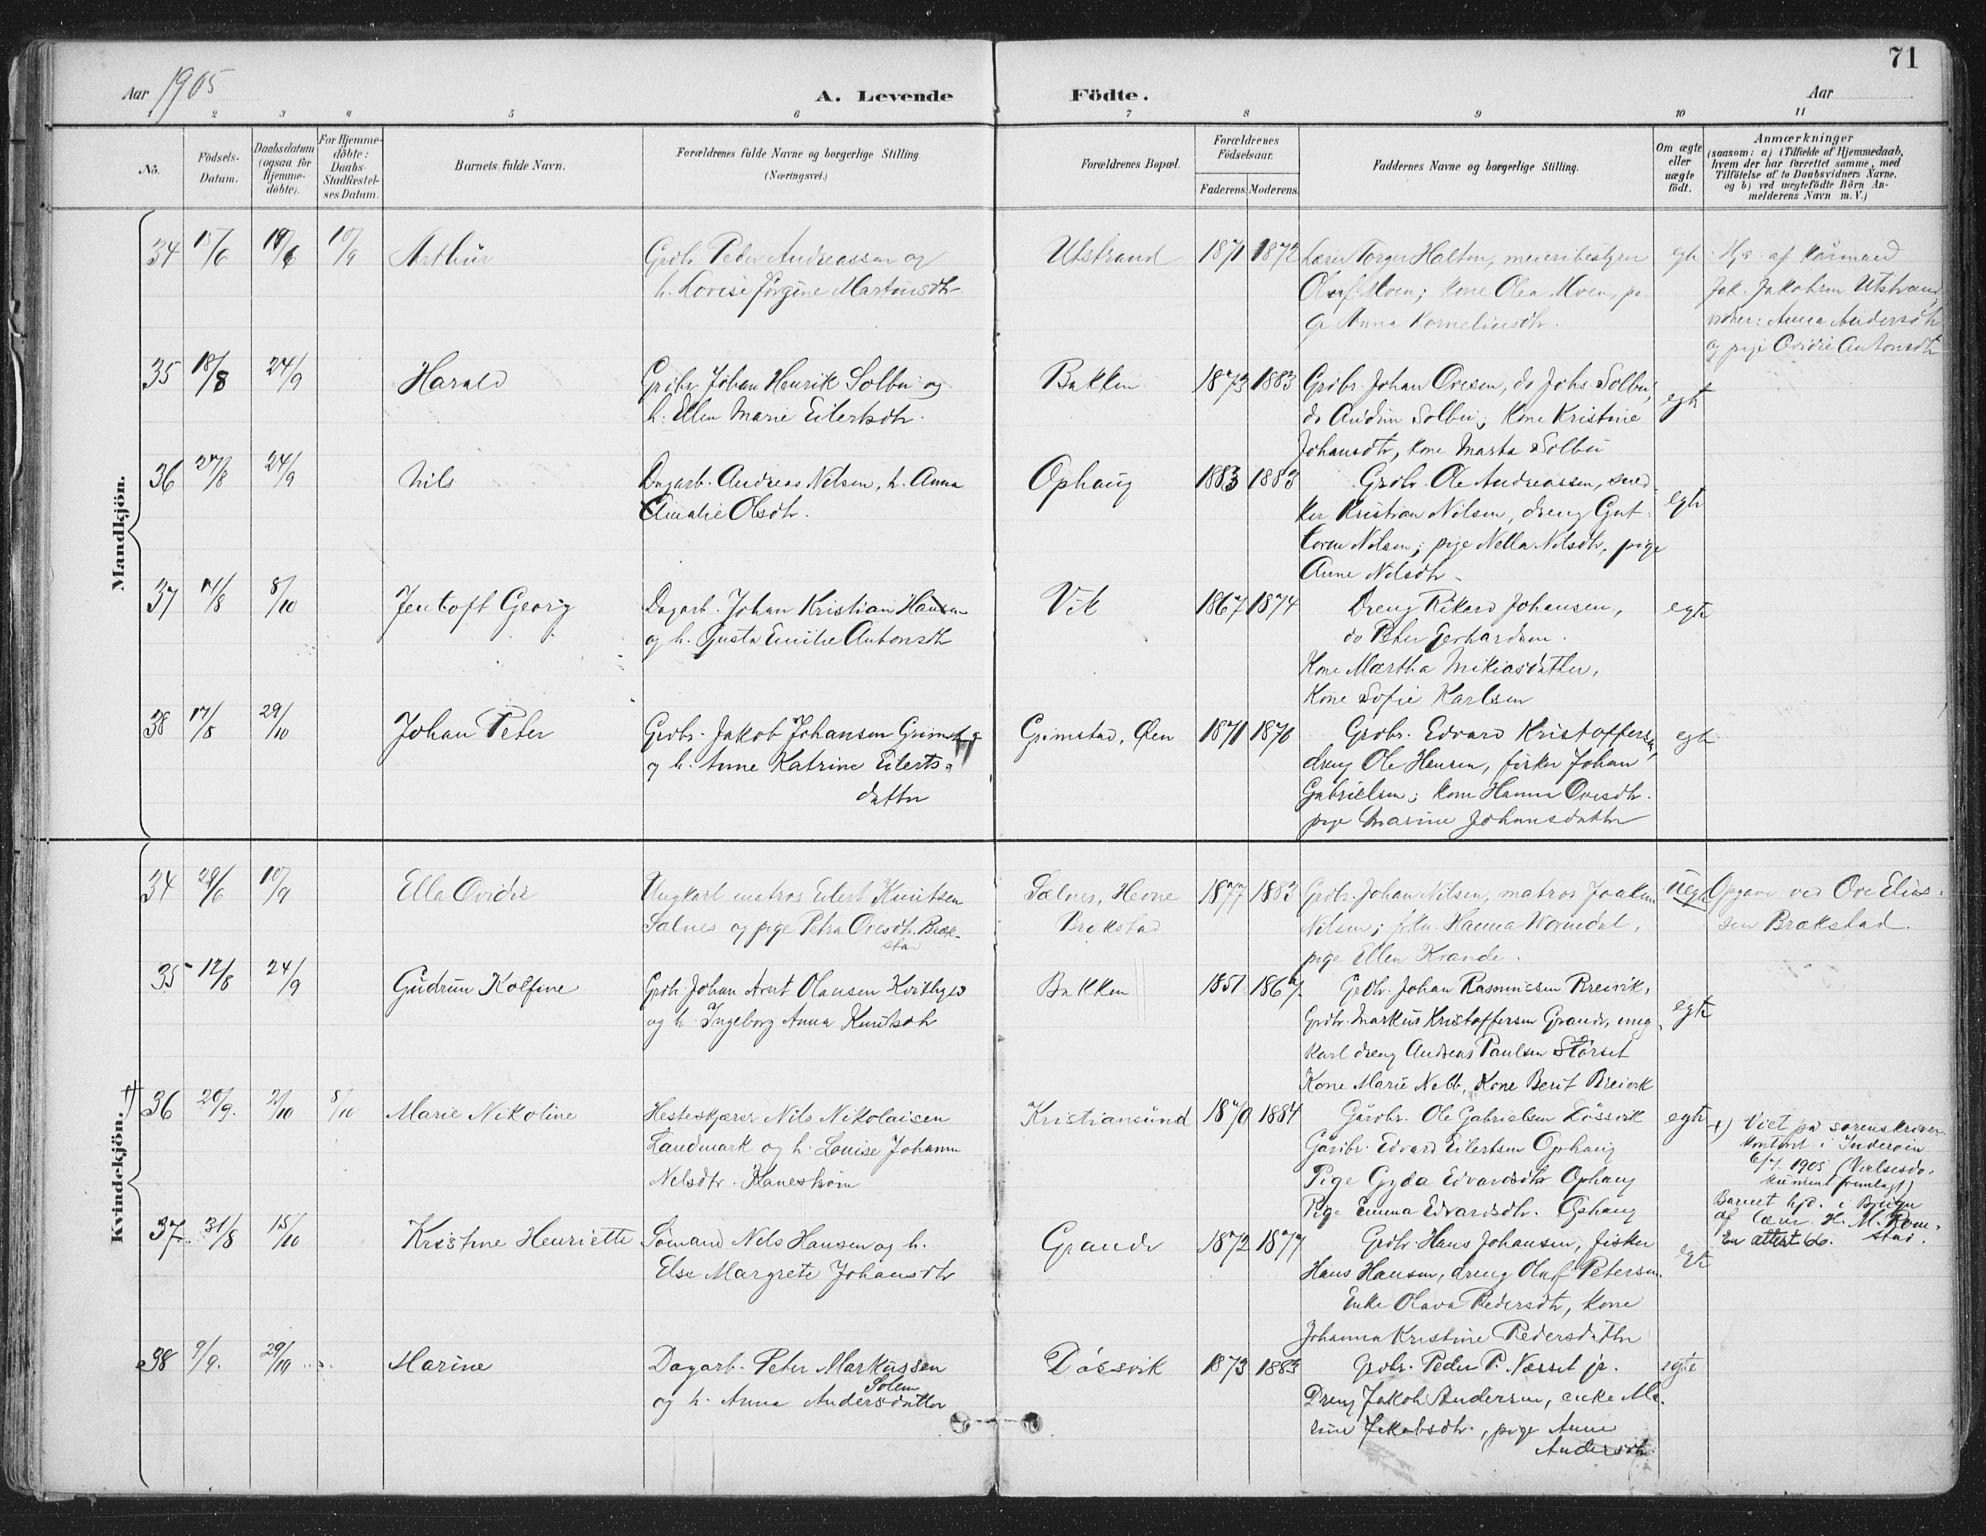 71
Aar 1905
A. Levende Födte.
Aar
1 2 3 4 5 6 7 8 9 10 11
No.
Födsels-Datum.
Daabsdatum (ogsaa för Hjemme-döbte).
For Hjemme-döbte: Daabs-Stadfæstel-ses Datum.
Barnets fulde Navn.
Forældrenes fulde Navne og borgerlige Stilling.
(Næringsvei.)
Forældrenes Bopæl.
Forældrenes Födselsaar.
Faderens. Moderens.
Faddernes Navne og borgerlige Stilling.
Om ægte eller uægte födt.
Anmærkninger
(saasom: a) i Tilfælde af Hjemmedaab,
hvem der har forrettet samme, med
Tilföielse af to Daabsvidners Navne.
og b) ved uægtefödte Börn An-
melderens Navn m. V.)
Mandkjön.
34 15/6 18/6 10/9 Arthur
Grdbr Peder Andreassen og
h. Lovise Jörgine Martinsdtr.
Utstrand 1871 1872
Lærer Torger Halten, meieribestyrer
Oluf Moen; kone Olea Moen, pi-
ge Anna Korneliusdtr.
egte
Hjd. af kirkesanger
Jak. Jakobsen Utstrand,
vidner: Anna Andersdtr
og pige Ovidie Antonsdtr
35 18/8 24/9 Harald
Grdbr Johan Henrik Solbu og
h. Ellen Marie Eilertsdtr.
Bakken 1873 1883
Grdbr. Johan Ovesen, do Johs Solbu,
do Audun Solbu; Kone Kristine
Johansdtr, kone Marta Solbu
egte
36 27/8 24/9 Nils
Dagarb. Andreas Nilsen, h. Anna
Amalie Olsdtr.
Ophaug 1883 1883
Grdbr. Ole Andreassen, sned-
ker Kristian Nilsen, dreng Gut-
torm Nilsen; pige Nella Nilsdtr, pige
Anne Nilsdtr
egte
37 14/8 8/10 Jentoft Georg
Dagarb. Johan Kristian Hansen
og h. Gusta Emilie Antonsdtr
Vik 1867 1874
Dreng Rikard Johansen,
do Peter Gerhardsen.
Kone Martha Mikiasdatter,
Kone Sofie Karlsen
egte
38 17/8 29/10 Johan Peter
Grdbr. Jakob Johansen Grimstad
og h. Anne Katrine Eilerts-
datter
Grimstad, Øen 1871 1870
Grdbr. Edvard Kristoffersen,
dreng Ole Hansen, fisker Johan
Gabrielsen; kone Hanna Ovesdtr.
pige Marine Johansdatter
egte
Kvindekjön.
34 29/6 10/9 Ella Ovidie
Ungkarl matros Eilert Knutsen
Sælnes og pige Petra Ovesdtr. Bræk-
stad
Sælnes, Hevne
Brækstad
1877 1883
Grdbr. Johan Nilsen, matros Joakim
Nilsen; frkn. Hanna Wormdal,
pige Ellen Krande.
uegte
Opgave ved Ove Elias-
sen Brækstad.
35 12/8 24/9 Gudrun Kolfine
Grdbr Johan Arnt Olausen Kvithyld
og h. Ingeborg Anna Knutsdtr
Bakken 1851 1867
Grdbr. Johan Rasmussen Breivik,
Grdbr. Markus Kristoffersen Grande, ung-
karl dreng Andreas Paulsen Størset
Kone Marie Nebb, Kone Berit Breivik
egte
†) 36 20/9. 2/10 8/10 Marie Nikoline
Hesteskjærer Nils Nikolaisen
Landmark og h. Louise Johanna
Nilsdtr. Kanestrøm
Kristiansund 1870 1884
Gårdbr. Ole Gabrielsen Døssvik
Gårdbr. Edvard Eilertsen Ophaug
Pige Gyda Edvardsdtr Ophaug
Pige Emma Edvardsdtr. Ophaug
egte
†) Viet på sorenskriver-
kontort i Inderøen
6/7 1905 (Vielsesdo-
kument fremlagt)
Barnet hjd. i Bjugn
af lærer H. M. Rom-
stad.
En attest 66.
37. 31/8 15/10 Kristine Henriette
Sømand Nils Hansen og h.
Else Margrete Johansdtr
Grande 1872 1877
Grdbr. Hans Johansen, fisker
Hans Hansen, dreng Oluf Petersen.
Enke Olava Pedersdtr, kone
Johanna Kristine Pedersdatter
egte
38 9/9. 29/10 Marine
Dagarb. Peter Markussen
Solem
og h. Anna Andersdatter
Døssvik 1873 1883
Grdbr. Peder P. Næsset jr.
Dreng Jakob Andersen, enke Ma-
rine Jakobsdtr., pige Anne
Andersdtr.
egte